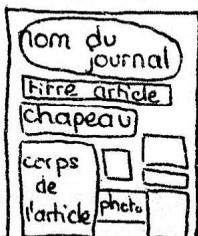 nom du
journal
titre article
chapeau
corps
de
l'article
photo